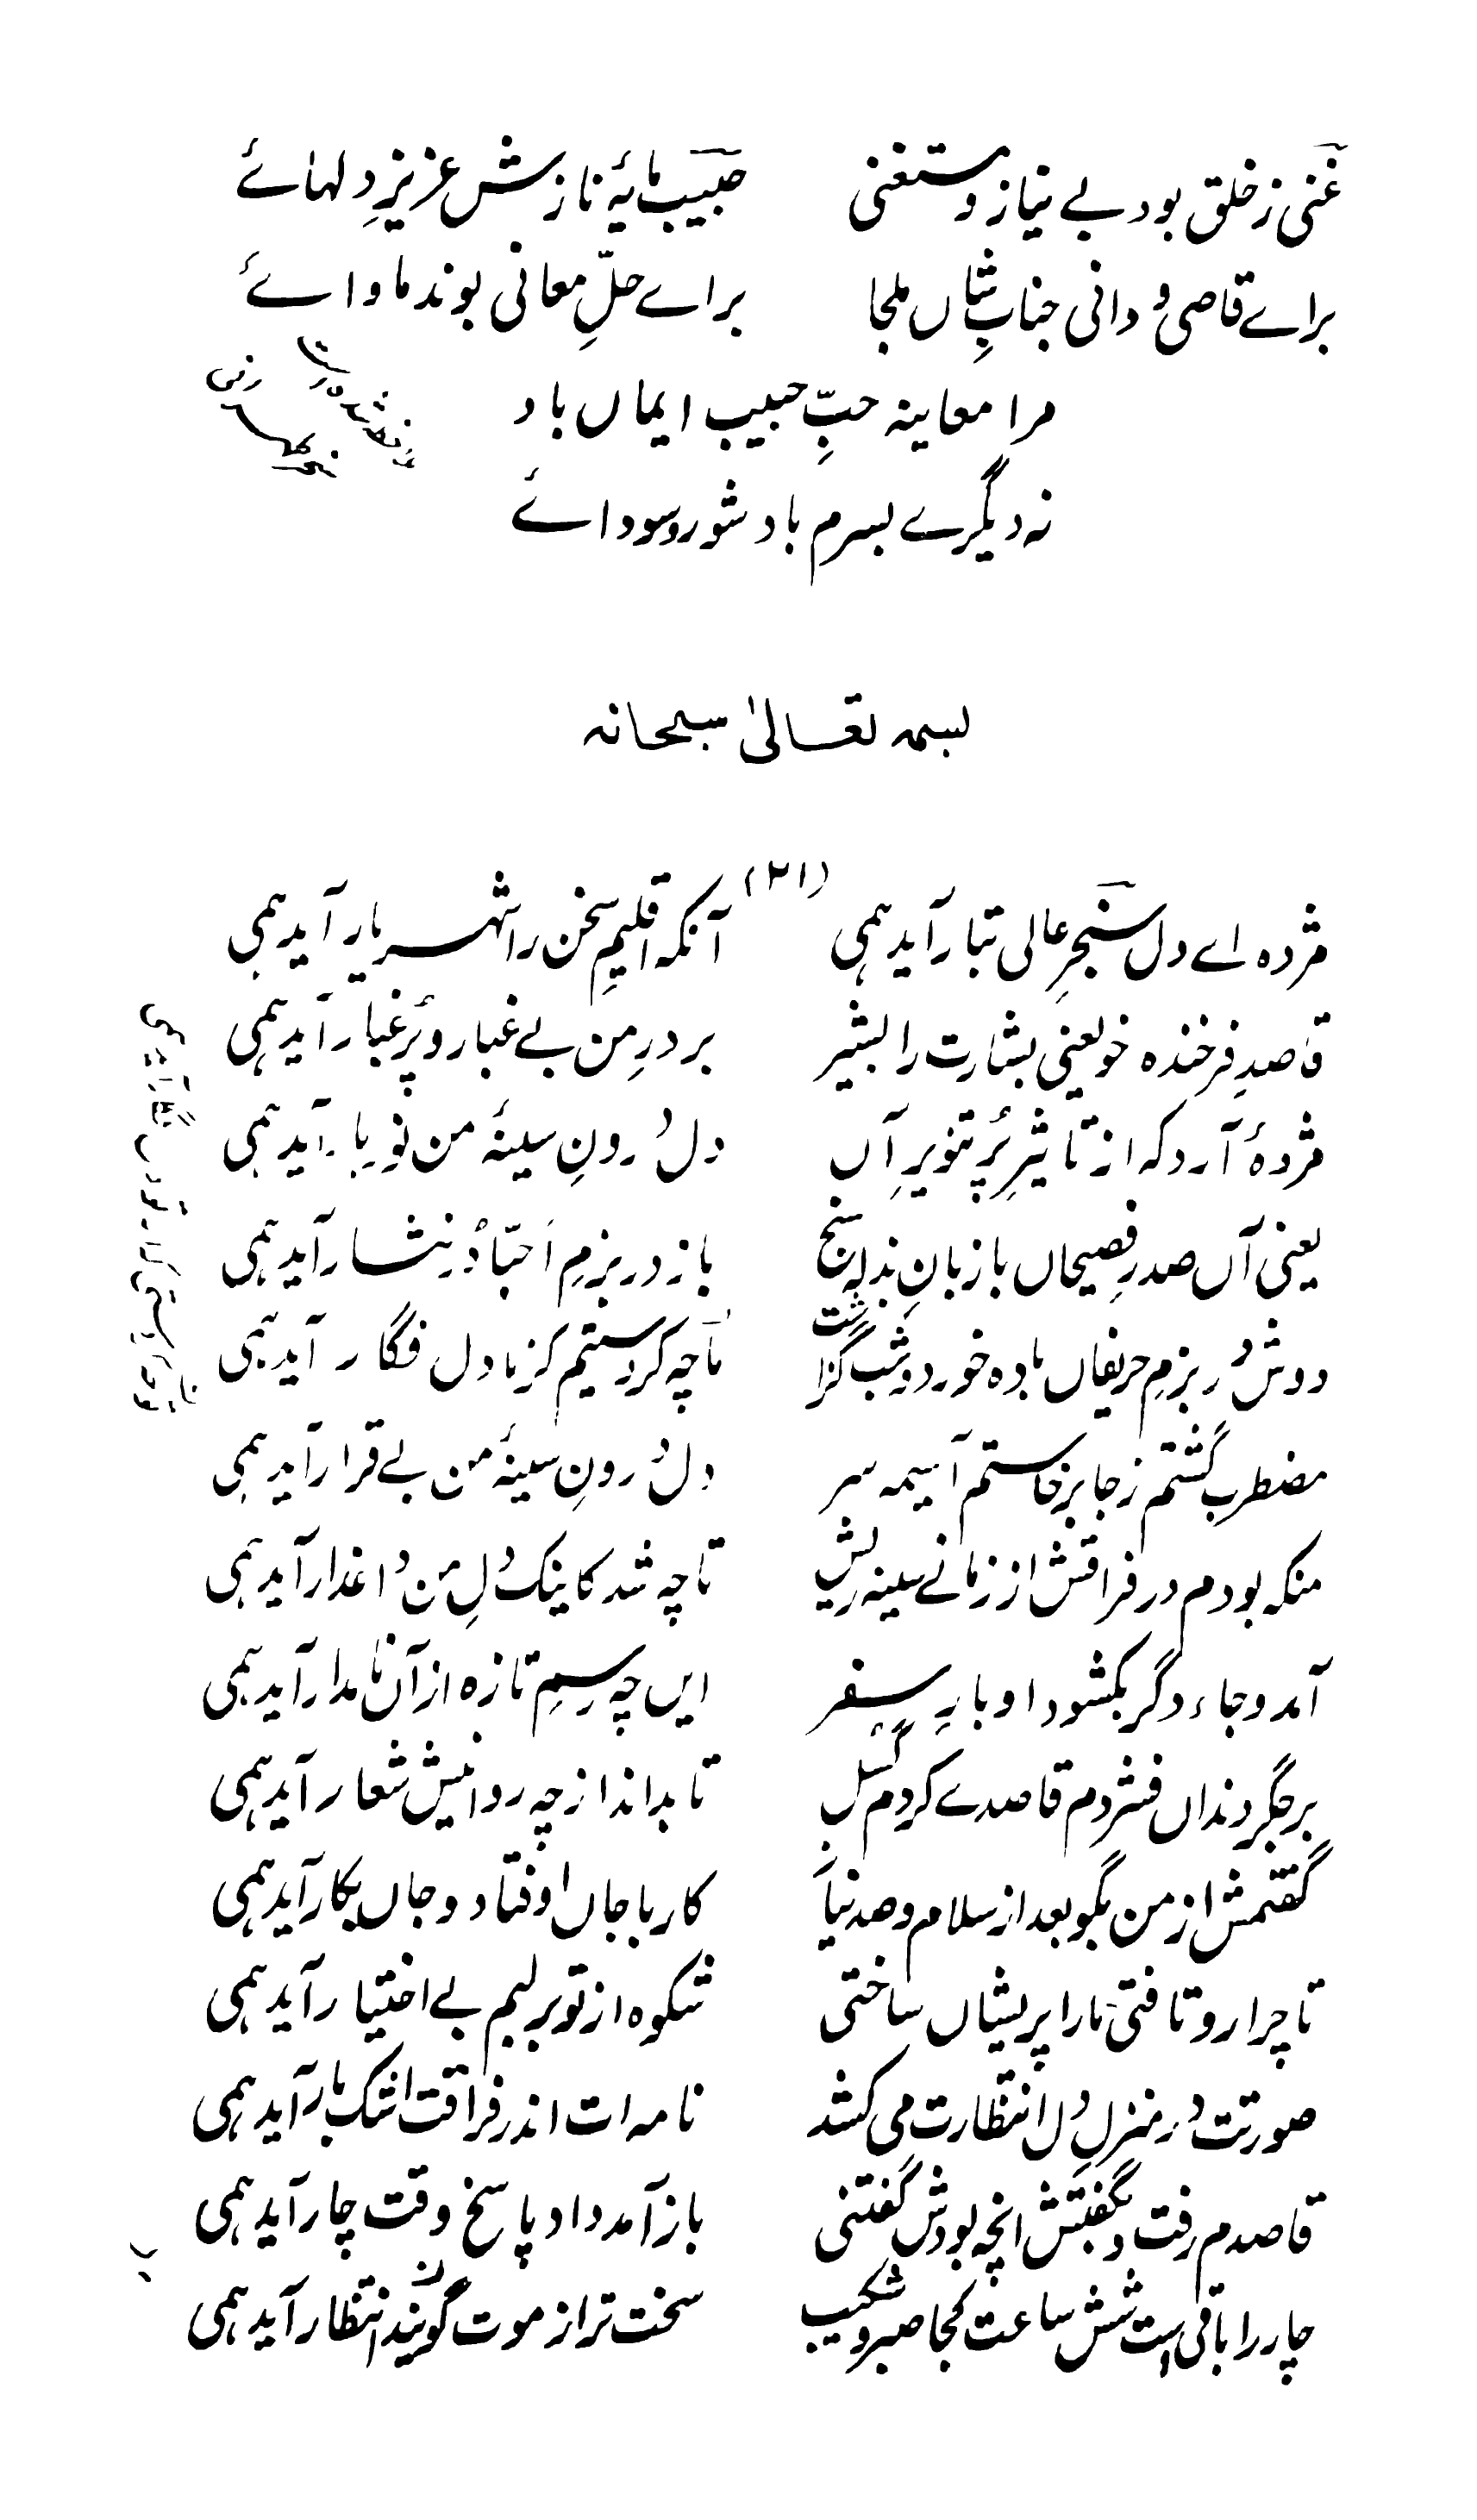 غنی ز خلق بود بے نیاز و مستغنی حبیب مایۂ نازش عزیزِ دلہائے
برائے قاصی و دانی جنابِ شاں ملجا برائے حلِّ معانی بوند ماوائے
مرا معاینہ حبِّ حبیب ایماں باد
نہ دیگرے بسرم باد شور و سودائے
بسمہ تعالیٰ سبحانہ
(۲۱)
مژدہ اے دل سنجرِ عالی تبار آید ہمی آنکہ اقلیمِ سخن را شہریار آید ہمی
قاصدِ فرخندہ خو یعنی بشارت را بشیر بر درِ من بے غبار و پُر غبار آید ہمی
مژدۂ آرد کہ از تاثیرِ پُر تنویرِ آں دل درونِ سینۂ من نور بار آید ہمی
یعنی آں صدرِ فصیحاں با زبانِ بذلہ سنج باز در بزمِ احبّا دُر نثار آید ہمی
دوش در بزمِ حریفاں بادہ خورد و شب گذاشت تا چہ کردستیم کز ما دل فگار آید ہمی
مضطرب گشتم ز جا برخاستم آسیمہ سر دل درونِ سینۂ من بے قرار آید ہمی
منکہ بودم در فراقش از زمانے سینہ ریش تا چہ شد کاینک دلِ من داغدار آید ہمی
آمد و جاء دگر بکشود او بارِ سفر ایں چہ رسمِ تازہ از آں نامدار آید ہمی
بر جگر دنداں فشردم قاصدے کردم گسل تا بداند از چہ رو انیش شعار آید ہمی
گفتمش از من بگو بعد از سلام و صد نیاز کار با جاں اوفتاد و جاں بکار آید ہمی
تا چرا رو تافتی ما را پریشاں ساختی شکوہ از تو بر لبم بے اختیار آید ہمی
صورتت در منزلِ دل انتظارت می کشد نامہ ات اندر فراقت اشک بار آید ہمی
قاصدم رفت و بگفتش انچہ بودش گفتنی باز آمد داد پاسخ وقت چار آید ہمی
چار را باقی ست شش ساعت کجا صبر و شکیب سخت تر از موت گویند انتظار آید ہمی